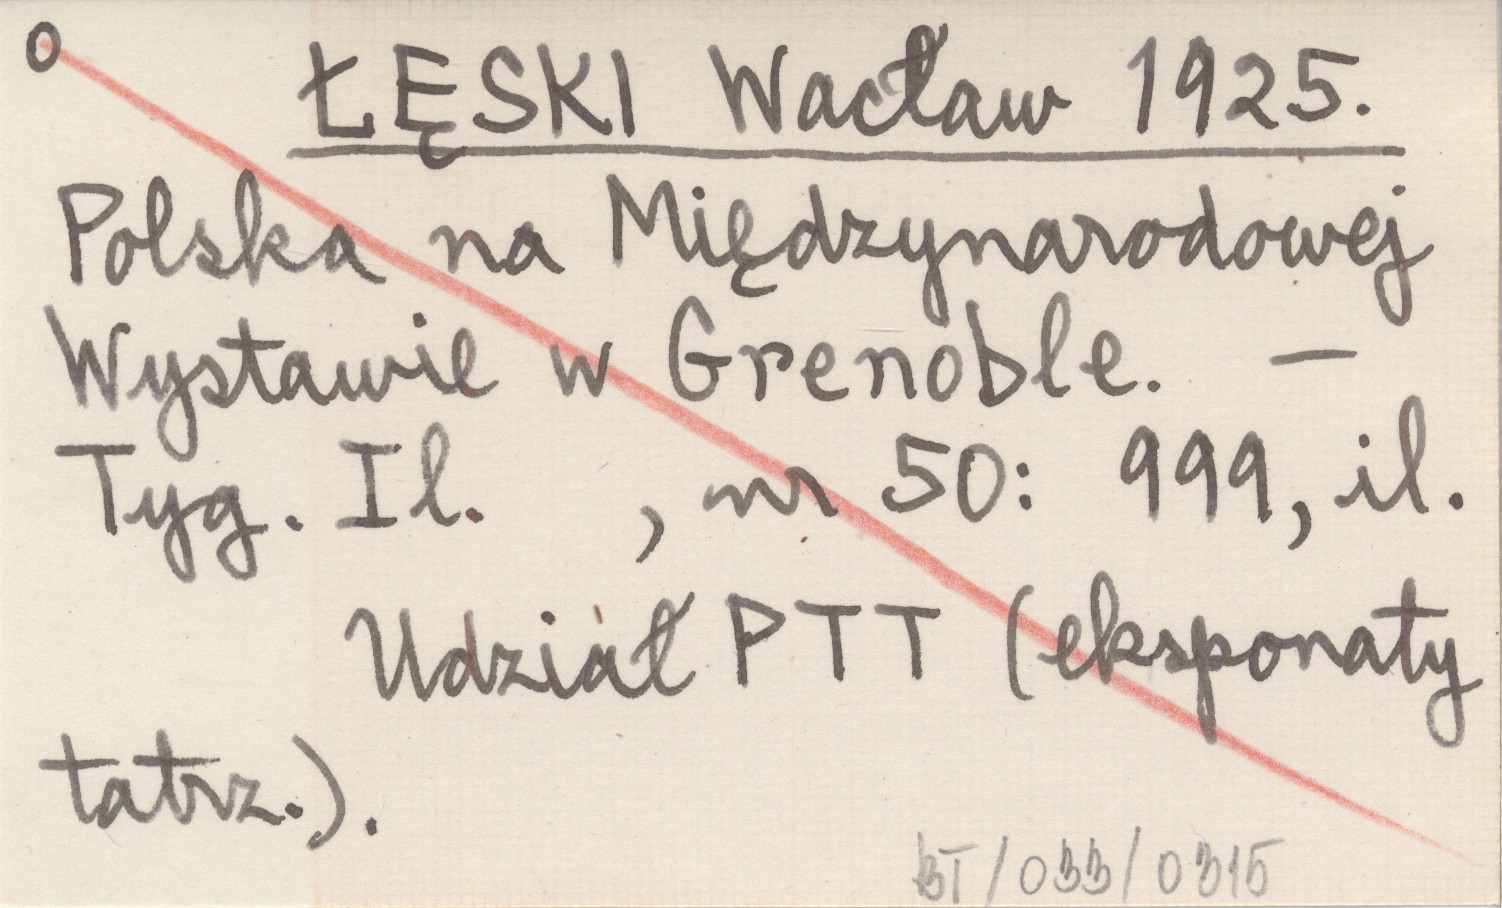 O ŁĘSKI Wacław 1925.
Polska na Międzynarodowej
Wystawie w Grenoble. —
Tyg. Il. , nr 50: 999, il.
Udział PTT (eksponaty
tatrz.).
BT/033/0315